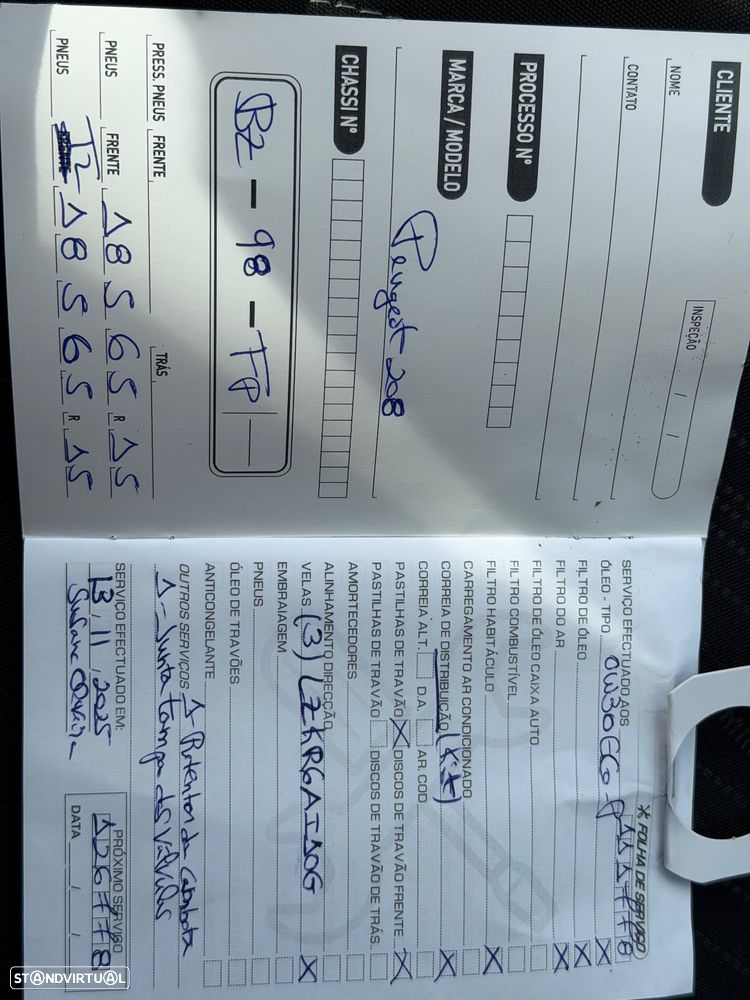 CLIENTE
INSPEÇÃO / /
NOME
CONTATO
PROCESSO Nº
MARCA / MODELO
Peugeot 208
CHASSI Nº
BZ - 98 - FP
PRESS. PNEUS FRENTE TRÁS
PNEUS FRENTE 185 65 R 15
PNEUS TZ 185 65 R 15
* FOLHA DE SERVIÇO
SERVIÇO EFECTUADO AOS 111778
ÓLEO - TIPO 0W30
FILTRO DE ÓLEO X
FILTRO DO AR X
FILTRO DE ÓLEO CAIXA AUTO
FILTRO COMBUSTÍVEL
FILTRO HABITÁCULO X
CARREGAMENTO AR CONDICIONADO
CORREIA DE DISTRIBUIÇÃO (Kit) X
CORREIA ALT. D.A. AR COD.
PASTILHAS DE TRAVÃO X DISCOS DE TRAVÃO FRENTE X
PASTILHAS DE TRAVÃO DISCOS DE TRAVÃO DE TRÁS.
AMORTECEDORES
ALINHAMENTO DIRECÇÃO
VELAS (3) LZKR6AI10G X
EMBRAIAGEM
PNEUS
ÓLEO DE TRAVÕES
ANTICONGELANTE
OUTROS SERVIÇOS 1 Retentor da Cambota
1 - Junta tampa das valvulas
SERVIÇO EFECTUADO EM:
13 / 11 / 2025
PRÓXIMO SERVIÇO
126778
DATA / /
STANDVIRTUAL